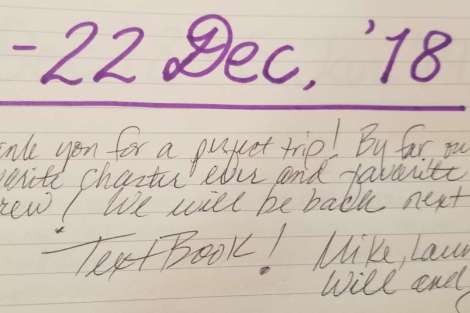 -22 Dec, '18
ank you for a perfect trip! By far ou
vorite charter ever and favorite
rew! We will be back next
TextBook! Mike, Laur
Will and